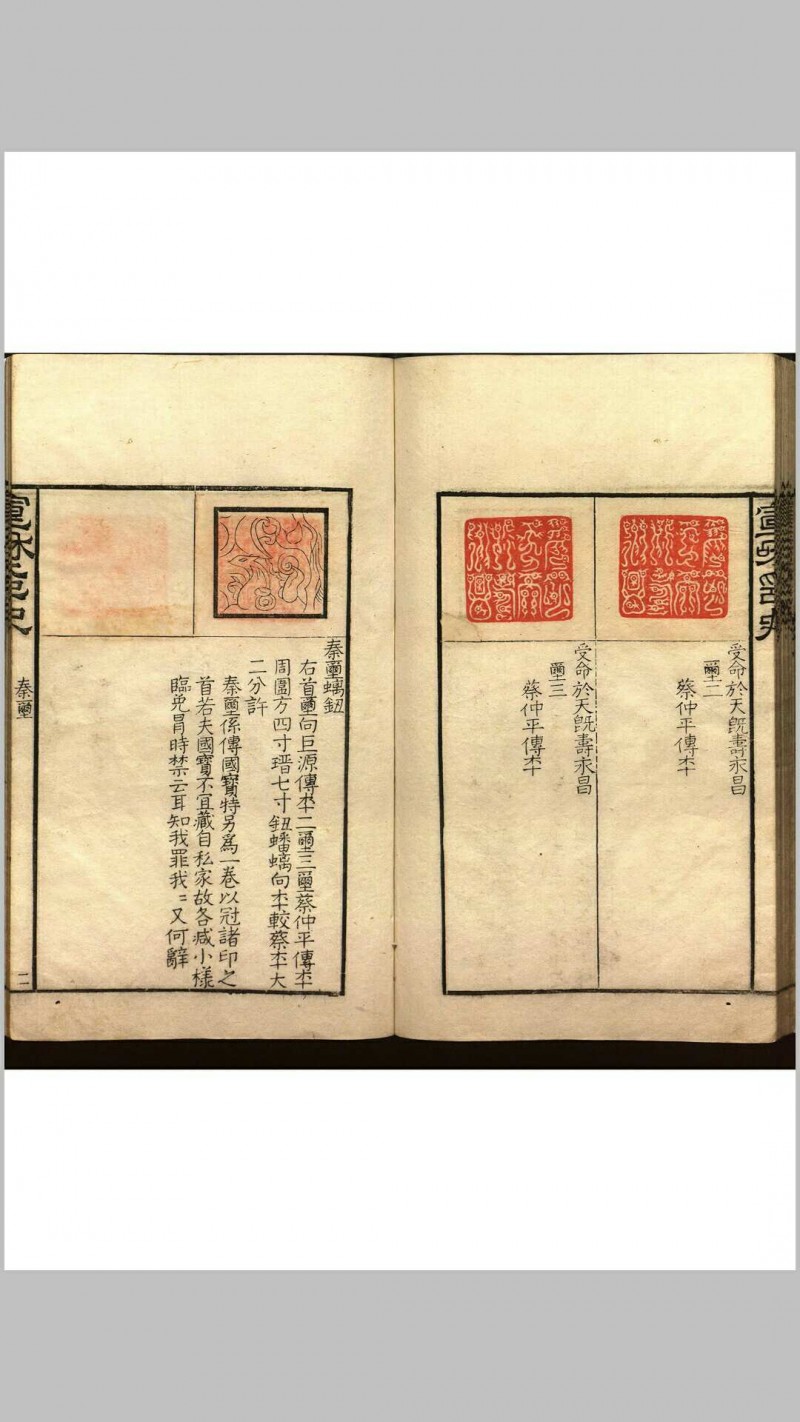 受命於天既壽永昌
璽二
蔡仲平傳本
受命於天既壽永昌
璽三
蔡仲平傳本
秦璽螭鈕
右首璽向巨源傳本二璽三璽蔡仲平傳本
周圍方四寸瑨七寸鈕蟠螭向本較蔡本大
二分許
秦璽係傳國寶特另爲一卷以冠諸印之
首若夫國寶不宜藏自私家故各减小樣
臨免冐時禁云耳知我罪我〻又何辭
秦璽
二